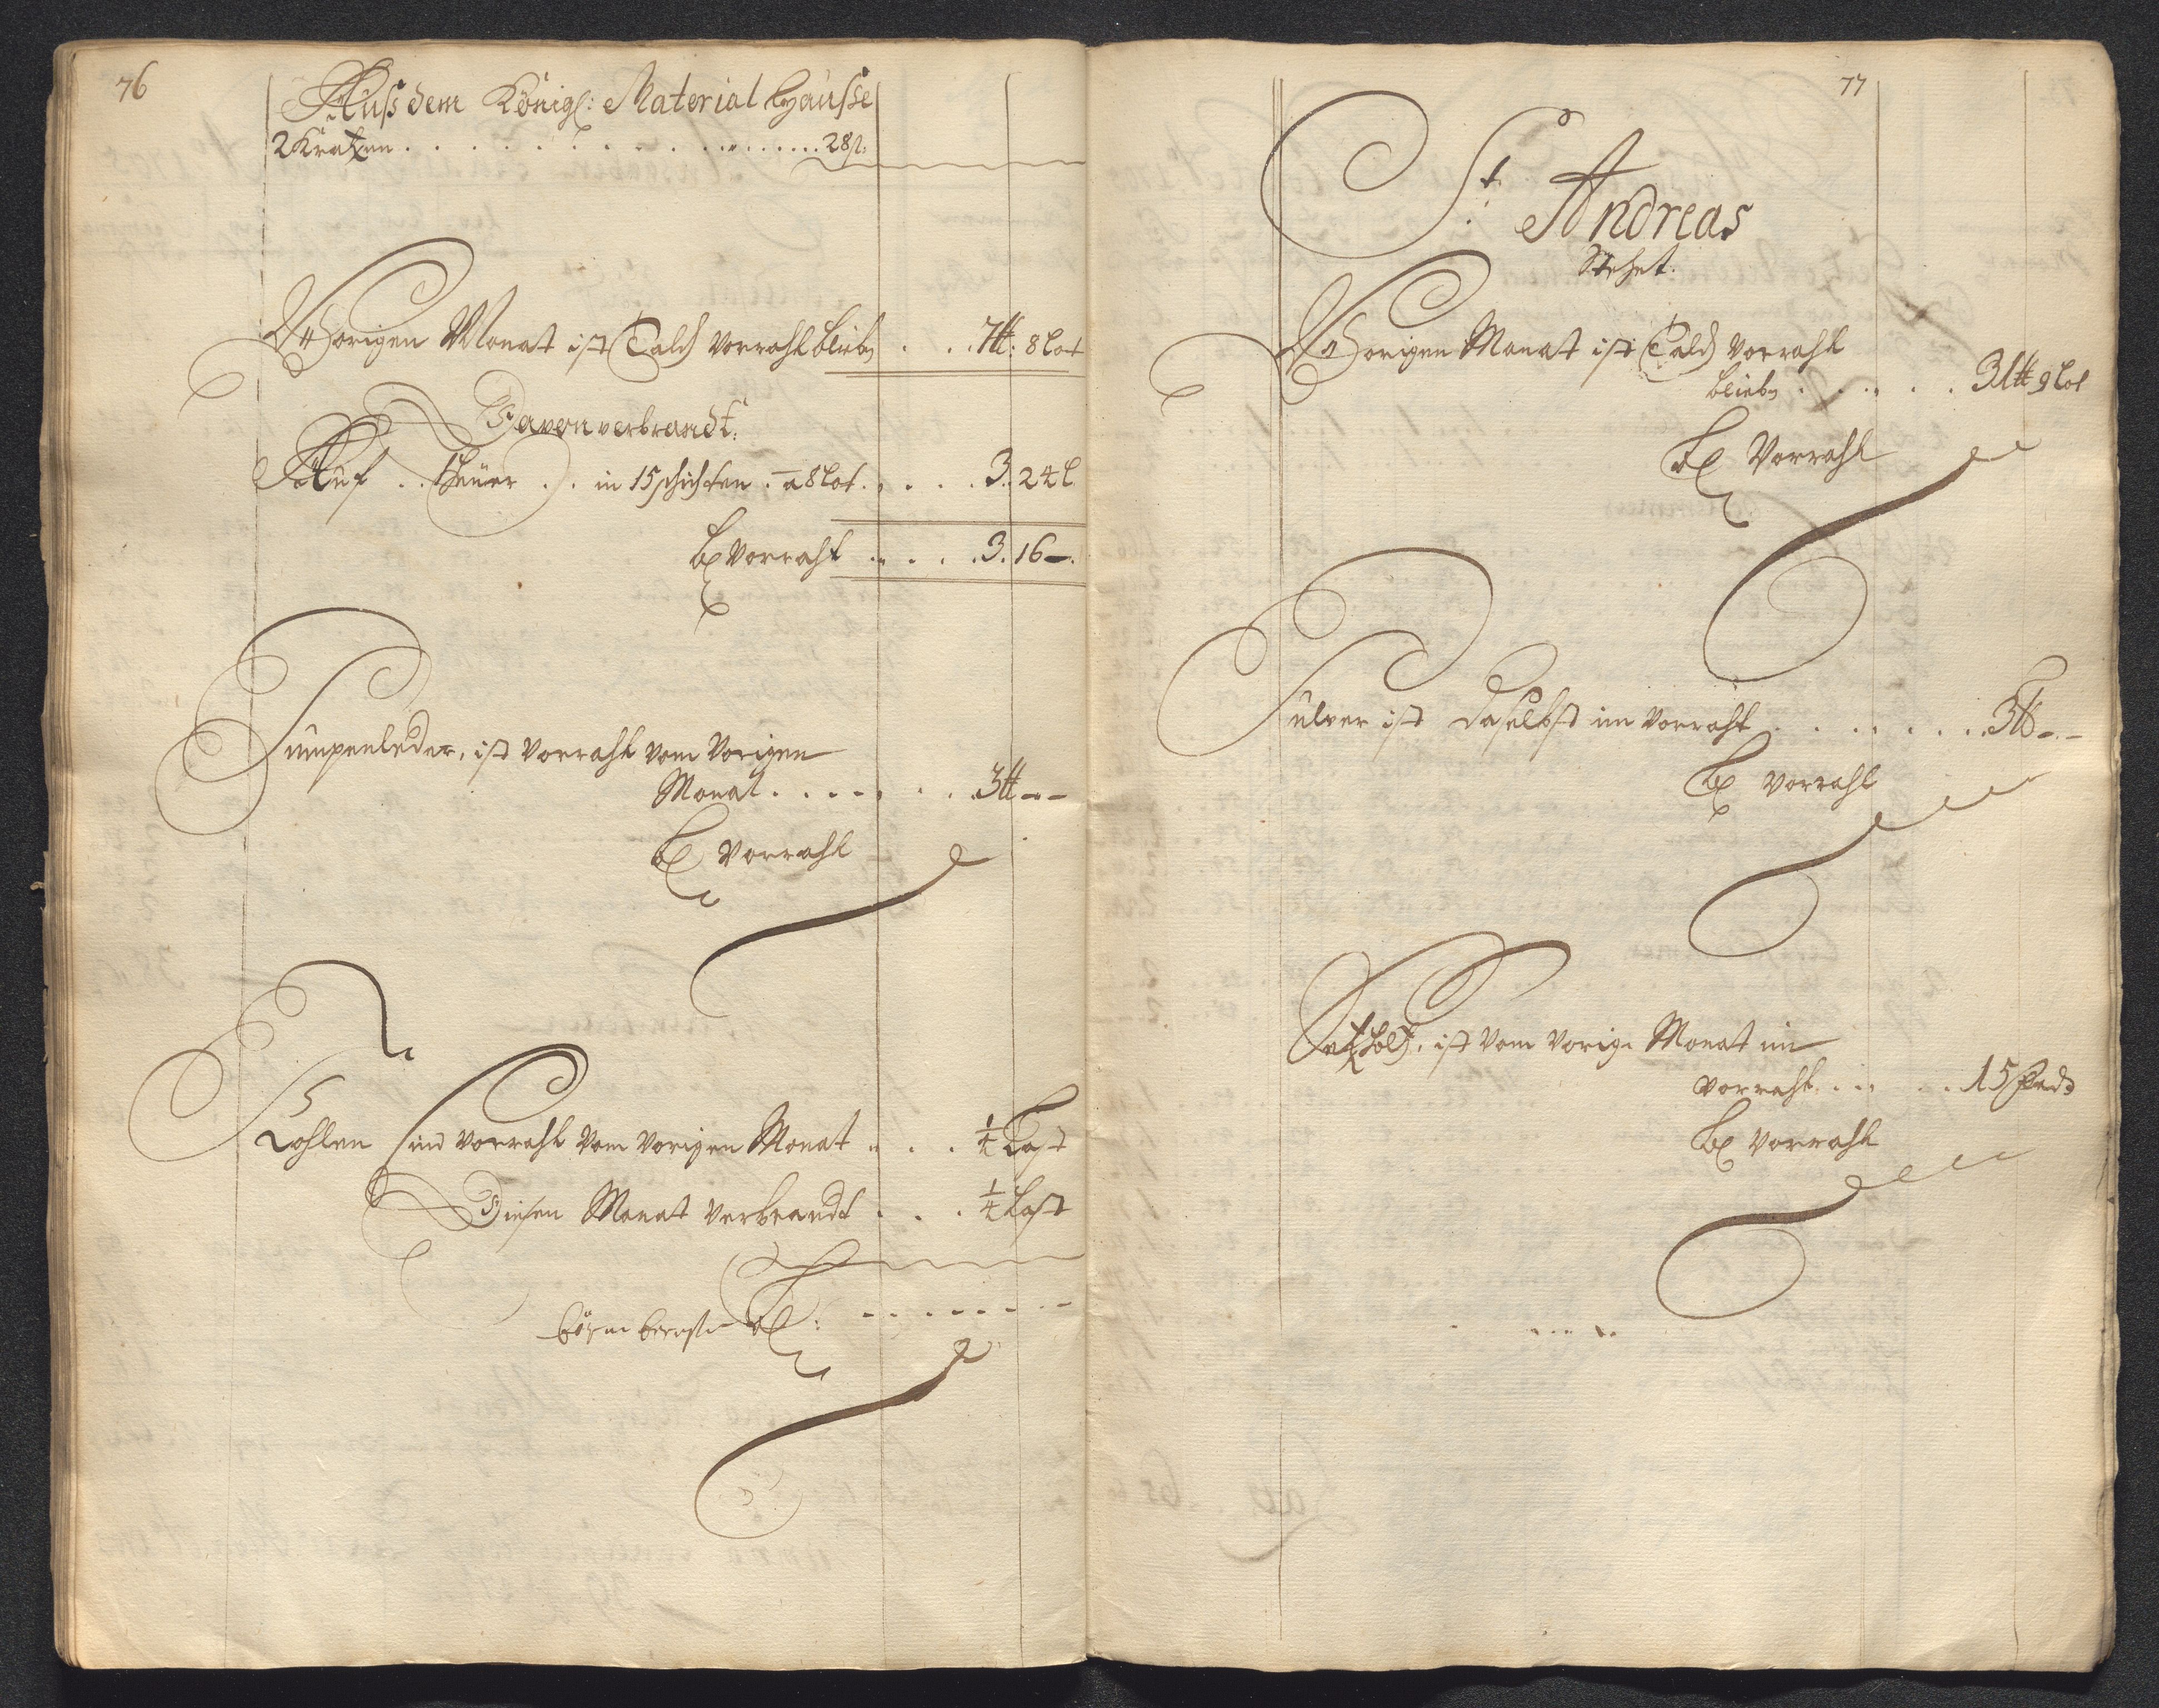 76
Auß dem Königl: Material Hausse
2 Kratzen . . . . . . . . . . . . 28 ß:
Vorigen Monat ist Talch Vorraht blieb . . . 7 ℔: 8 Lot
Davon verbrandt:
Auf . . feuer . . in 15 schichten . a 8 Lot . . . . . 3. 24 l
bl Vorraht . . . . 3. 16 –.
Pumpenleder, ist Vorraht vom Vorigen
Monat . . . . . . . 3 ℔ – –
bl Vorraht
Kohlen sind Vorraht vom Vorigen Monat . . . ¼ Last
Diesen Monat verbrandt . . . ¼ Last
bl: - - - - - - -
77
St Andreas
Stehet.
Vorigen Monat ist Talch Vorraht
blieb . . . . . . 31 ℔ 9 Lot
bl Vorraht
Pulver ist daselbst im Vorraht . . . . . . . 5 ℔ – –
bl Vorraht
Setzholtz, ist vom Vorig. Monat im
Vorraht . . . . . 15
bl Vorraht